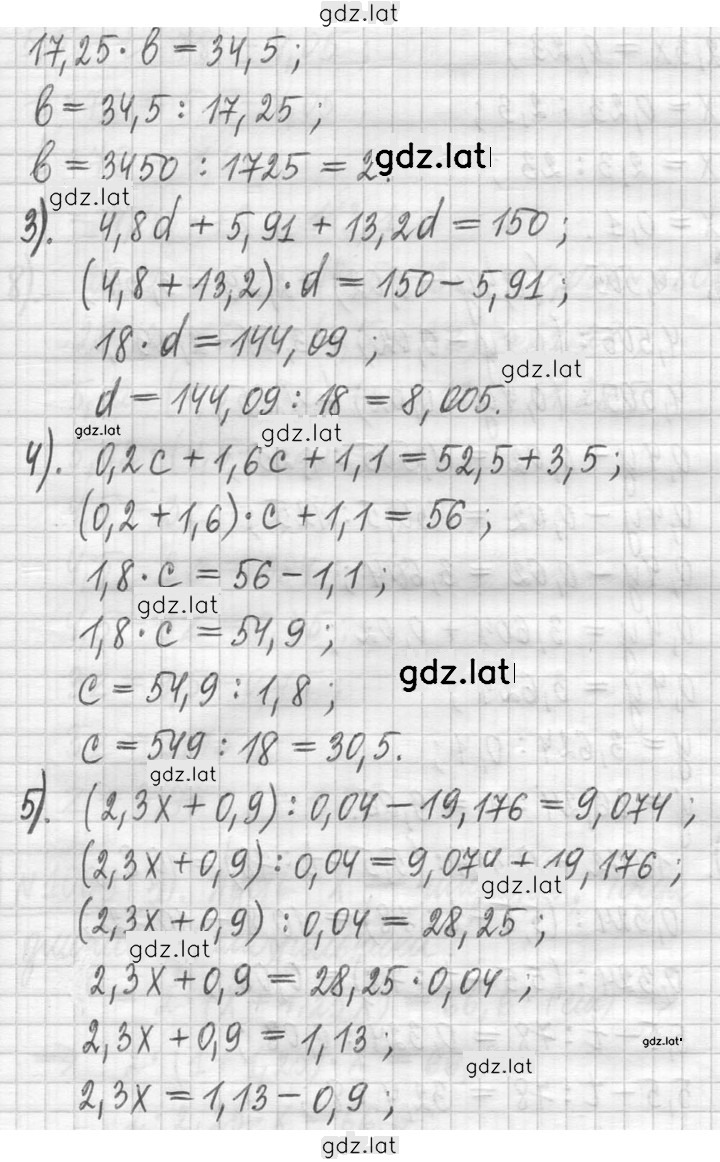 gdz.lat
17,25 · b = 34,5 ;
b = 34,5 : 17,25 ;
b = 3450 : 1725 = 2. gdz.lat
gdz.lat
3). 4,8d + 5,91 + 13,2d = 150 ;
(4,8 + 13,2) · d = 150 - 5,91 ;
18 · d = 144,09 ;
gdz.lat
d = 144,09 : 18 = 8,005.
gdz.lat gdz.lat
4). 0,2c + 1,6c + 1,1 = 52,5 + 3,5 ;
(0,2 + 1,6) · c + 1,1 = 56 ;
1,8 · c = 56 - 1,1 ;
gdz.lat
1,8 · c = 54,9 ;
c = 54,9 : 1,8 ; gdz.lat
c = 549 : 18 = 30,5.
gdz.lat
5). (2,3x + 0,9) : 0,04 - 19,176 = 9,074 ;
(2,3x + 0,9) : 0,04 = 9,074 + 19,176 ;
gdz.lat
(2,3x + 0,9) : 0,04 = 28,25 ;
gdz.lat
2,3x + 0,9 = 28,25 · 0,04 ;
2,3x + 0,9 = 1,13 ;
gdz.lat
gdz.lat
2,3x = 1,13 - 0,9 ;
gdz.lat